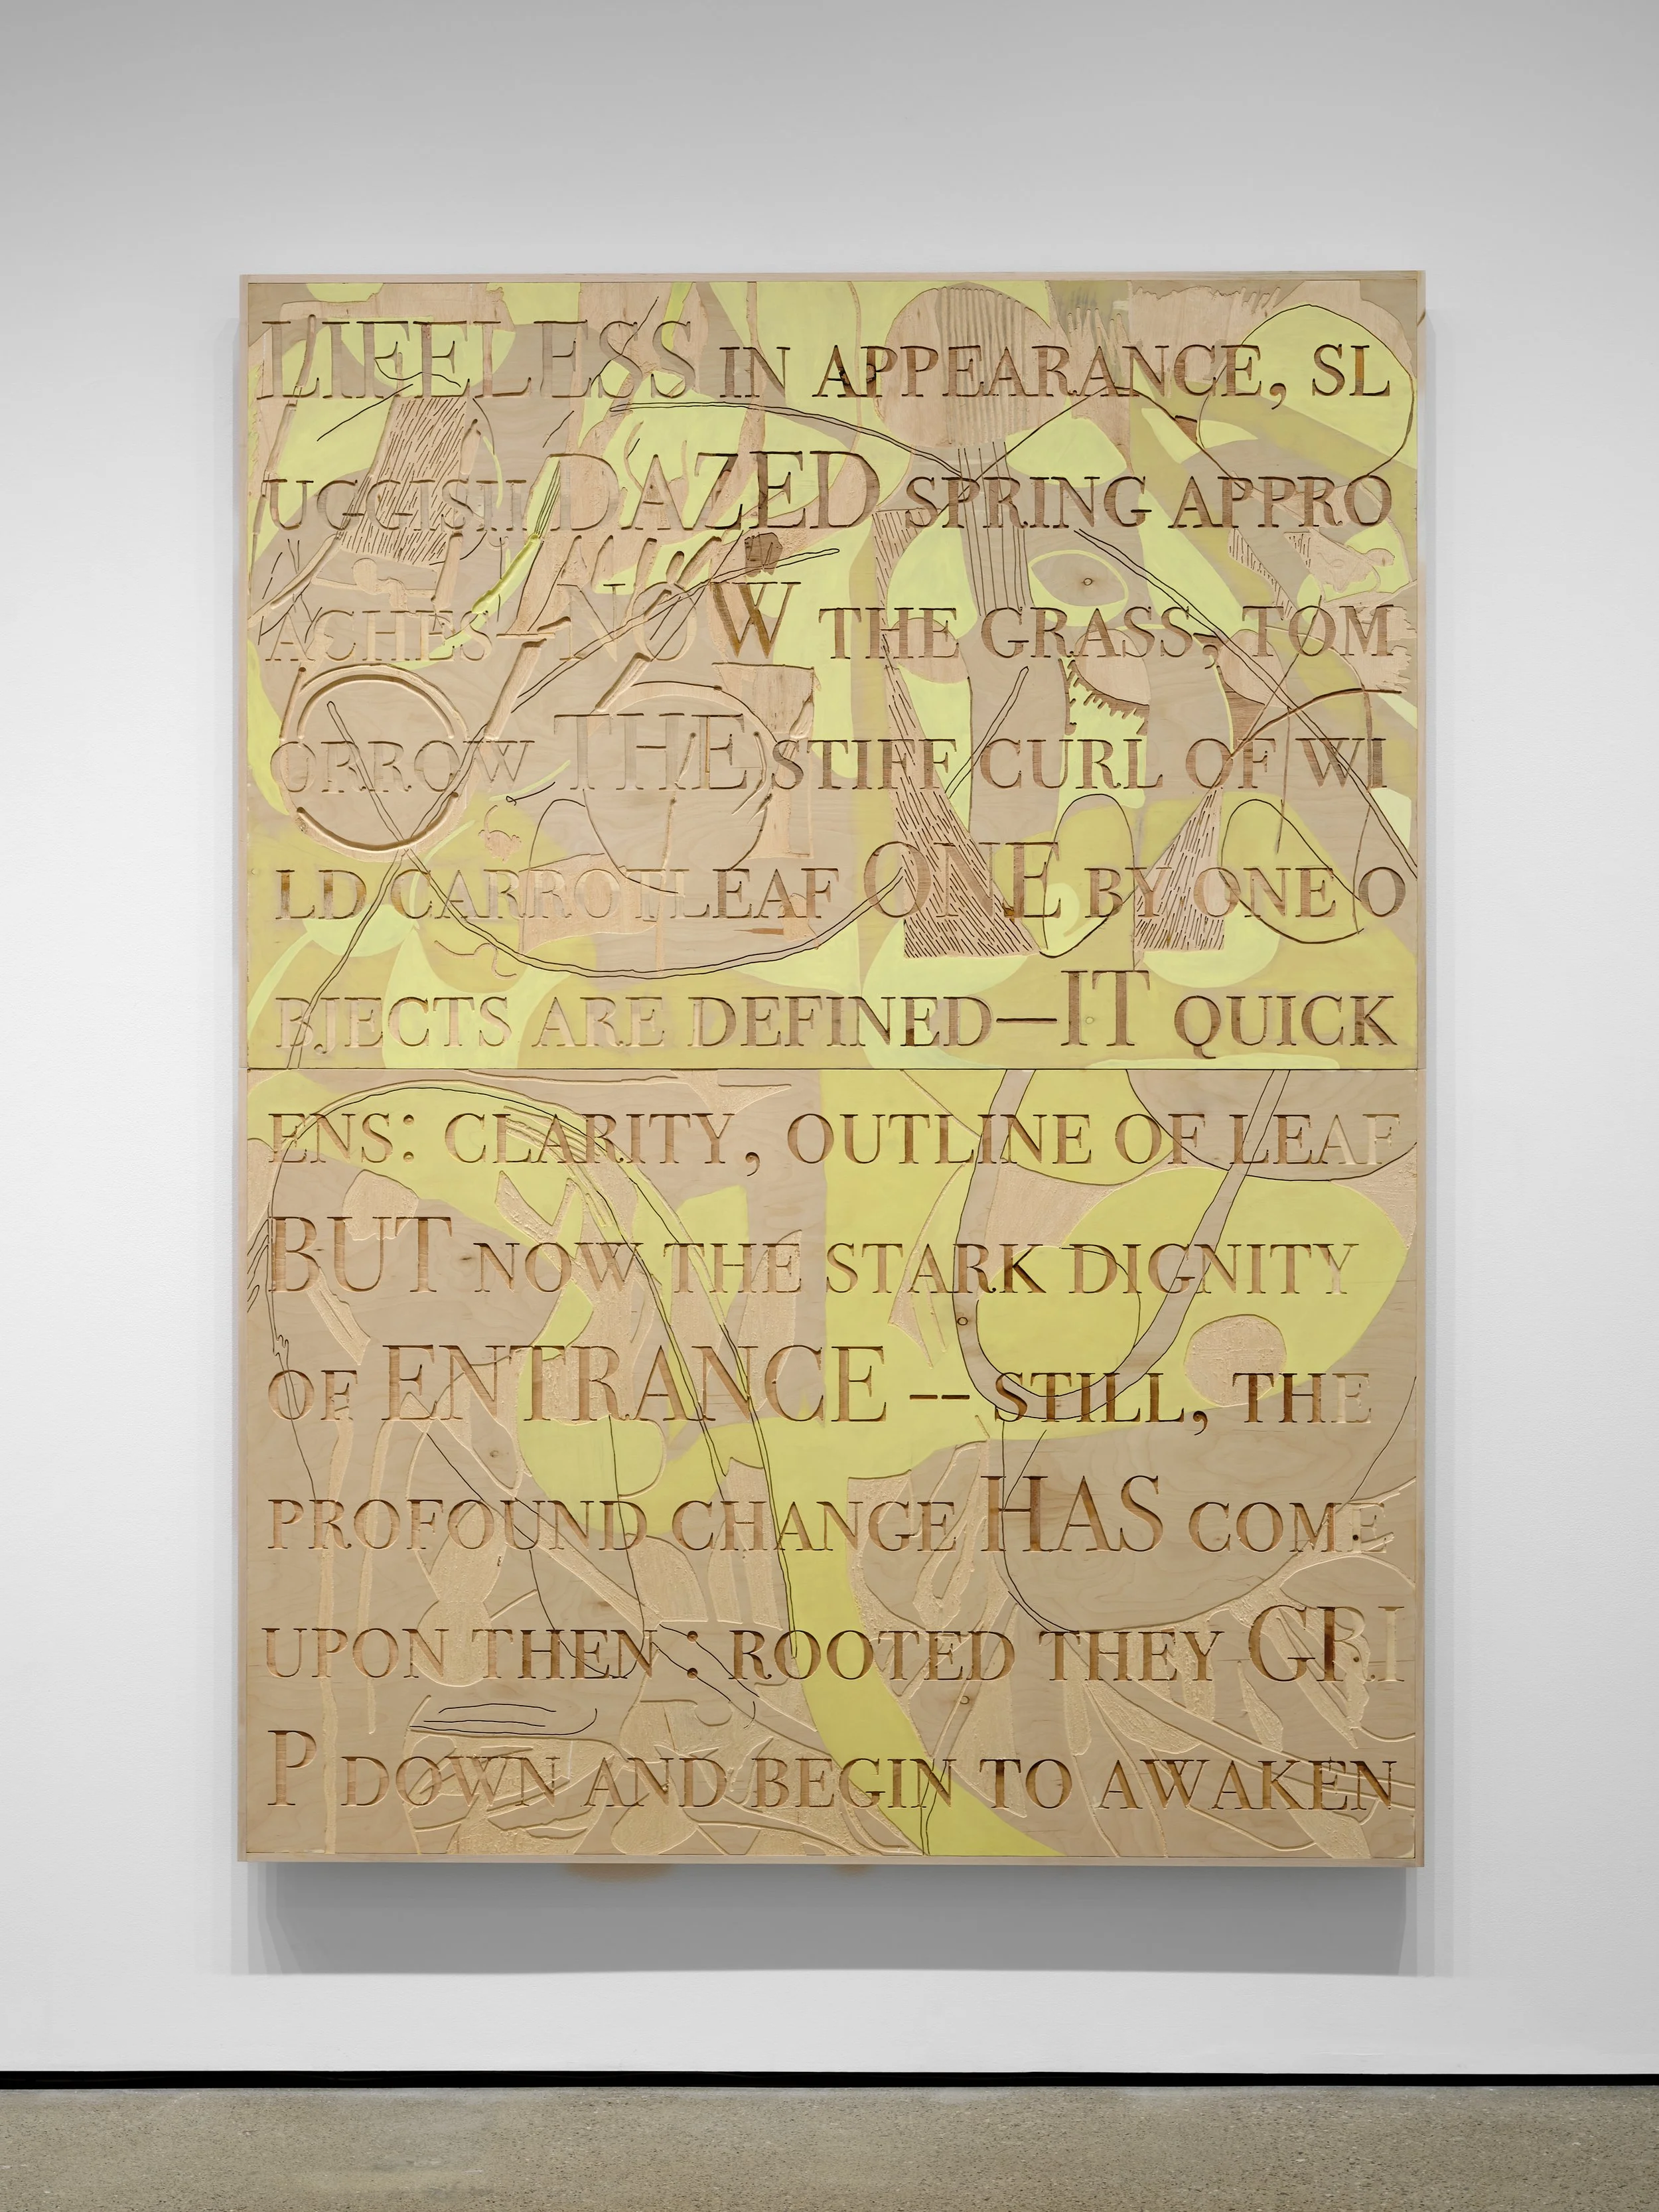 LIFELESS IN APPEARANCE, SL
UGGISH DAZED SPRING APPRO
ACHES—NOW THE GRASS, TOM
ORROW THE STIFF CURL OF WI
LD CARROTLEAF ONE BY ONE O
BJECTS ARE DEFINED—IT QUICK
ENS: CLARITY, OUTLINE OF LEAF
BUT NOW THE STARK DIGNITY
OF ENTRANCE -- STILL, THE
PROFOUND CHANGE HAS COME
UPON THEN: ROOTED THEY GRI
P DOWN AND BEGIN TO AWAKEN